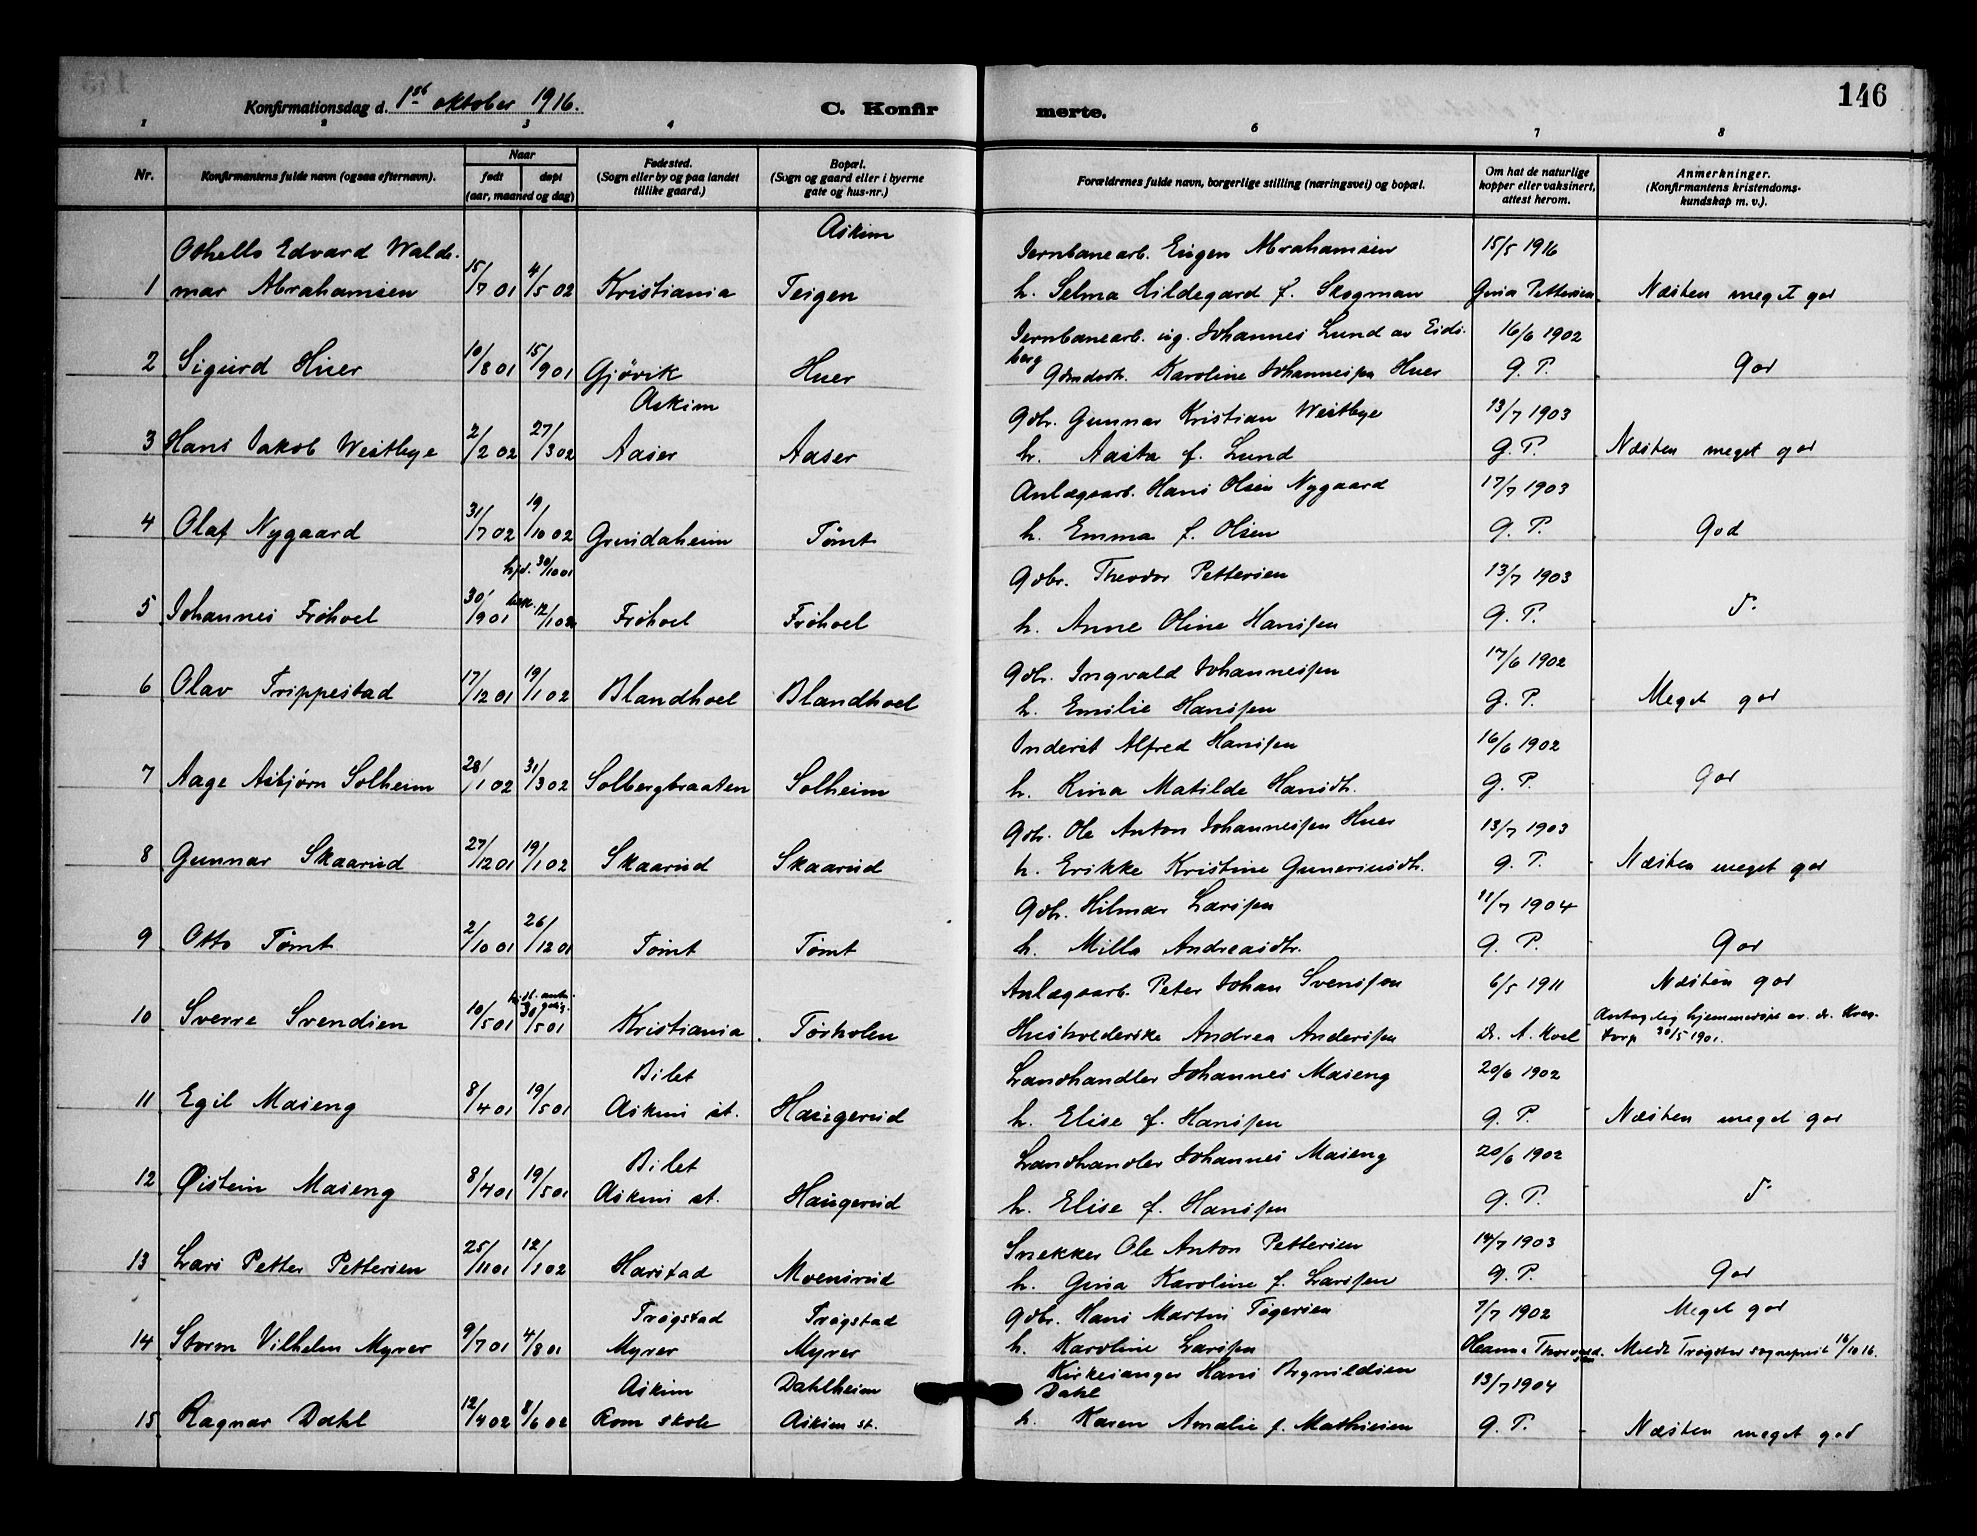 146
Konfirmationsdag d. 1ste oktober 1916.
C. Konfir merte.
1 2 3 4 6 7 8
Nr.
Konfirmantens fulde navn (ogsaa efternavn).
Naar
født døpt
(aar, maaned og dag)
Fødested.
(Sogn eller by og paa landet
tillike gaard.)
Bopæl.
(Sogn og gaard eller i byerne
gate og hus-nr.)
Forældrenes fulde navn, borgerlige stilling (næringsvei) og bopæl.
Om hat de naturlige
kopper eller vaksinert,
attest herom.
Anmerkninger.
(Konfirmantens kristendoms-
kundskap m. v.).
Askim
Othello Edvard Walde- Jernbanearb. Eugen Abrahamsen 15/5 1916
1 mar Abrahamsen 15/7 01 4/5 02 Kristiania Teigen h. Selma Hildegard f. Skogman Gina Pettersen Næsten meget god
Jernbanearb. ug. Johannes Lund av Eids- 16/6 1902
2 Sigurd Huer 10/8 01 15/9 01 Gjøvik Huer berg Gdmdstr. Karoline Johannesen Huer G. P. God
Askim Gdbr. Gunnar Kristian Westbye 13/7 1903
3 Hans Jakob Westbye 2/2 02 27/3 02 Aaser Aaser h. Aasta f. Lund G. P. Næsten meget god
Anlægsarb. Hans Olsen Nygaard 17/7 1903
4 Olaf Nygaard 31/7 02 19/10 02 Grindaheim Tømt h. Emma f. Olsen G. P. God
hjd. 30/10 01 Gdbr. Theodor Pettersen 13/7 1903
5 Johannes Frøhoel 30/9 01 bek. 12/1 02 Frøhoel Frøhoel h. Anne Oline Hansen G. P. d.
Gdbr. Ingvald Johannessen 17/6 1902
6 Olav Trippestad 17/12 01 19/1 02 Blandhoel Blandhoel h. Emilie Hanssen G. P. Meget god
Inderst Alfred Hanssen 16/6 1902
7 Aage Asbjørn Solheim 28/1 02 31/3 02 Solbergbraaten Solheim h. Rina Matilde Hansdtr. G. P. God
Gdbr. Ole Anton Johannessen Huer 13/7 1903
8 Gunnar Skaarud 27/12 01 19/1 02 Skaarud Skaarud h. Erikke Kristine Gunerius dtr. G. P. Næsten meget god
Gdbr. Hilmar Larssen 11/7 1904
9 Otto Tømt 2/10 01 26/12 01 Tømt Tømt h. Milla Andreasdtr. G. P. God
Anlægsarb. Peter Johan Svenssen 6/5 1911 Næsten god
10 Sverre Svendsen 10/5 01 30/5 01 Kristiania Torkolen Husholderske Andrea Anderssen Dr. A. Koel Antagelig hjemmedøpt av dr.
30/5 1901.
Bilet Landhandler Johannes Maseng 20/6 1902
11 Egil Maseng 8/4 01 19/5 01 Askim st. Haugerud h. Elise f. Hanssen G. P. Næsten meget god
Bilet Landhandler Johannes Maseng 20/6 1902
12 Øistein Maseng 8/4 01 19/5 01 Askim st. Haugerud h. Elise f. Hanssen G. P. d.
Snekker Ole Anton Pettersen 14/7 1903
13 Lars Petter Pettersen 25/11 01 12/1 02 Harstad Moensrud h. Gina Karoline f. Larssen G. P. God
Trøgstad Trøgstad Gdbr. Hans Martin Tøgersen 7/7 1902 Meget god
14 Storm Vilhelm Myrer 9/7 01 4/8 01 Myrer Myrer h. Karoline Larssen Hanna Meldt Trøgstad sogneprest 16/10 16.
Askim Dahlheim Kirkesanger Hans Brynildsen 13/7 1904
Dahl
15 Ragnar Dahl 12/4 02 8/6 02 Rom skole Askim st. h. Karen Amalie f. Mathisen G. P. Næsten meget god